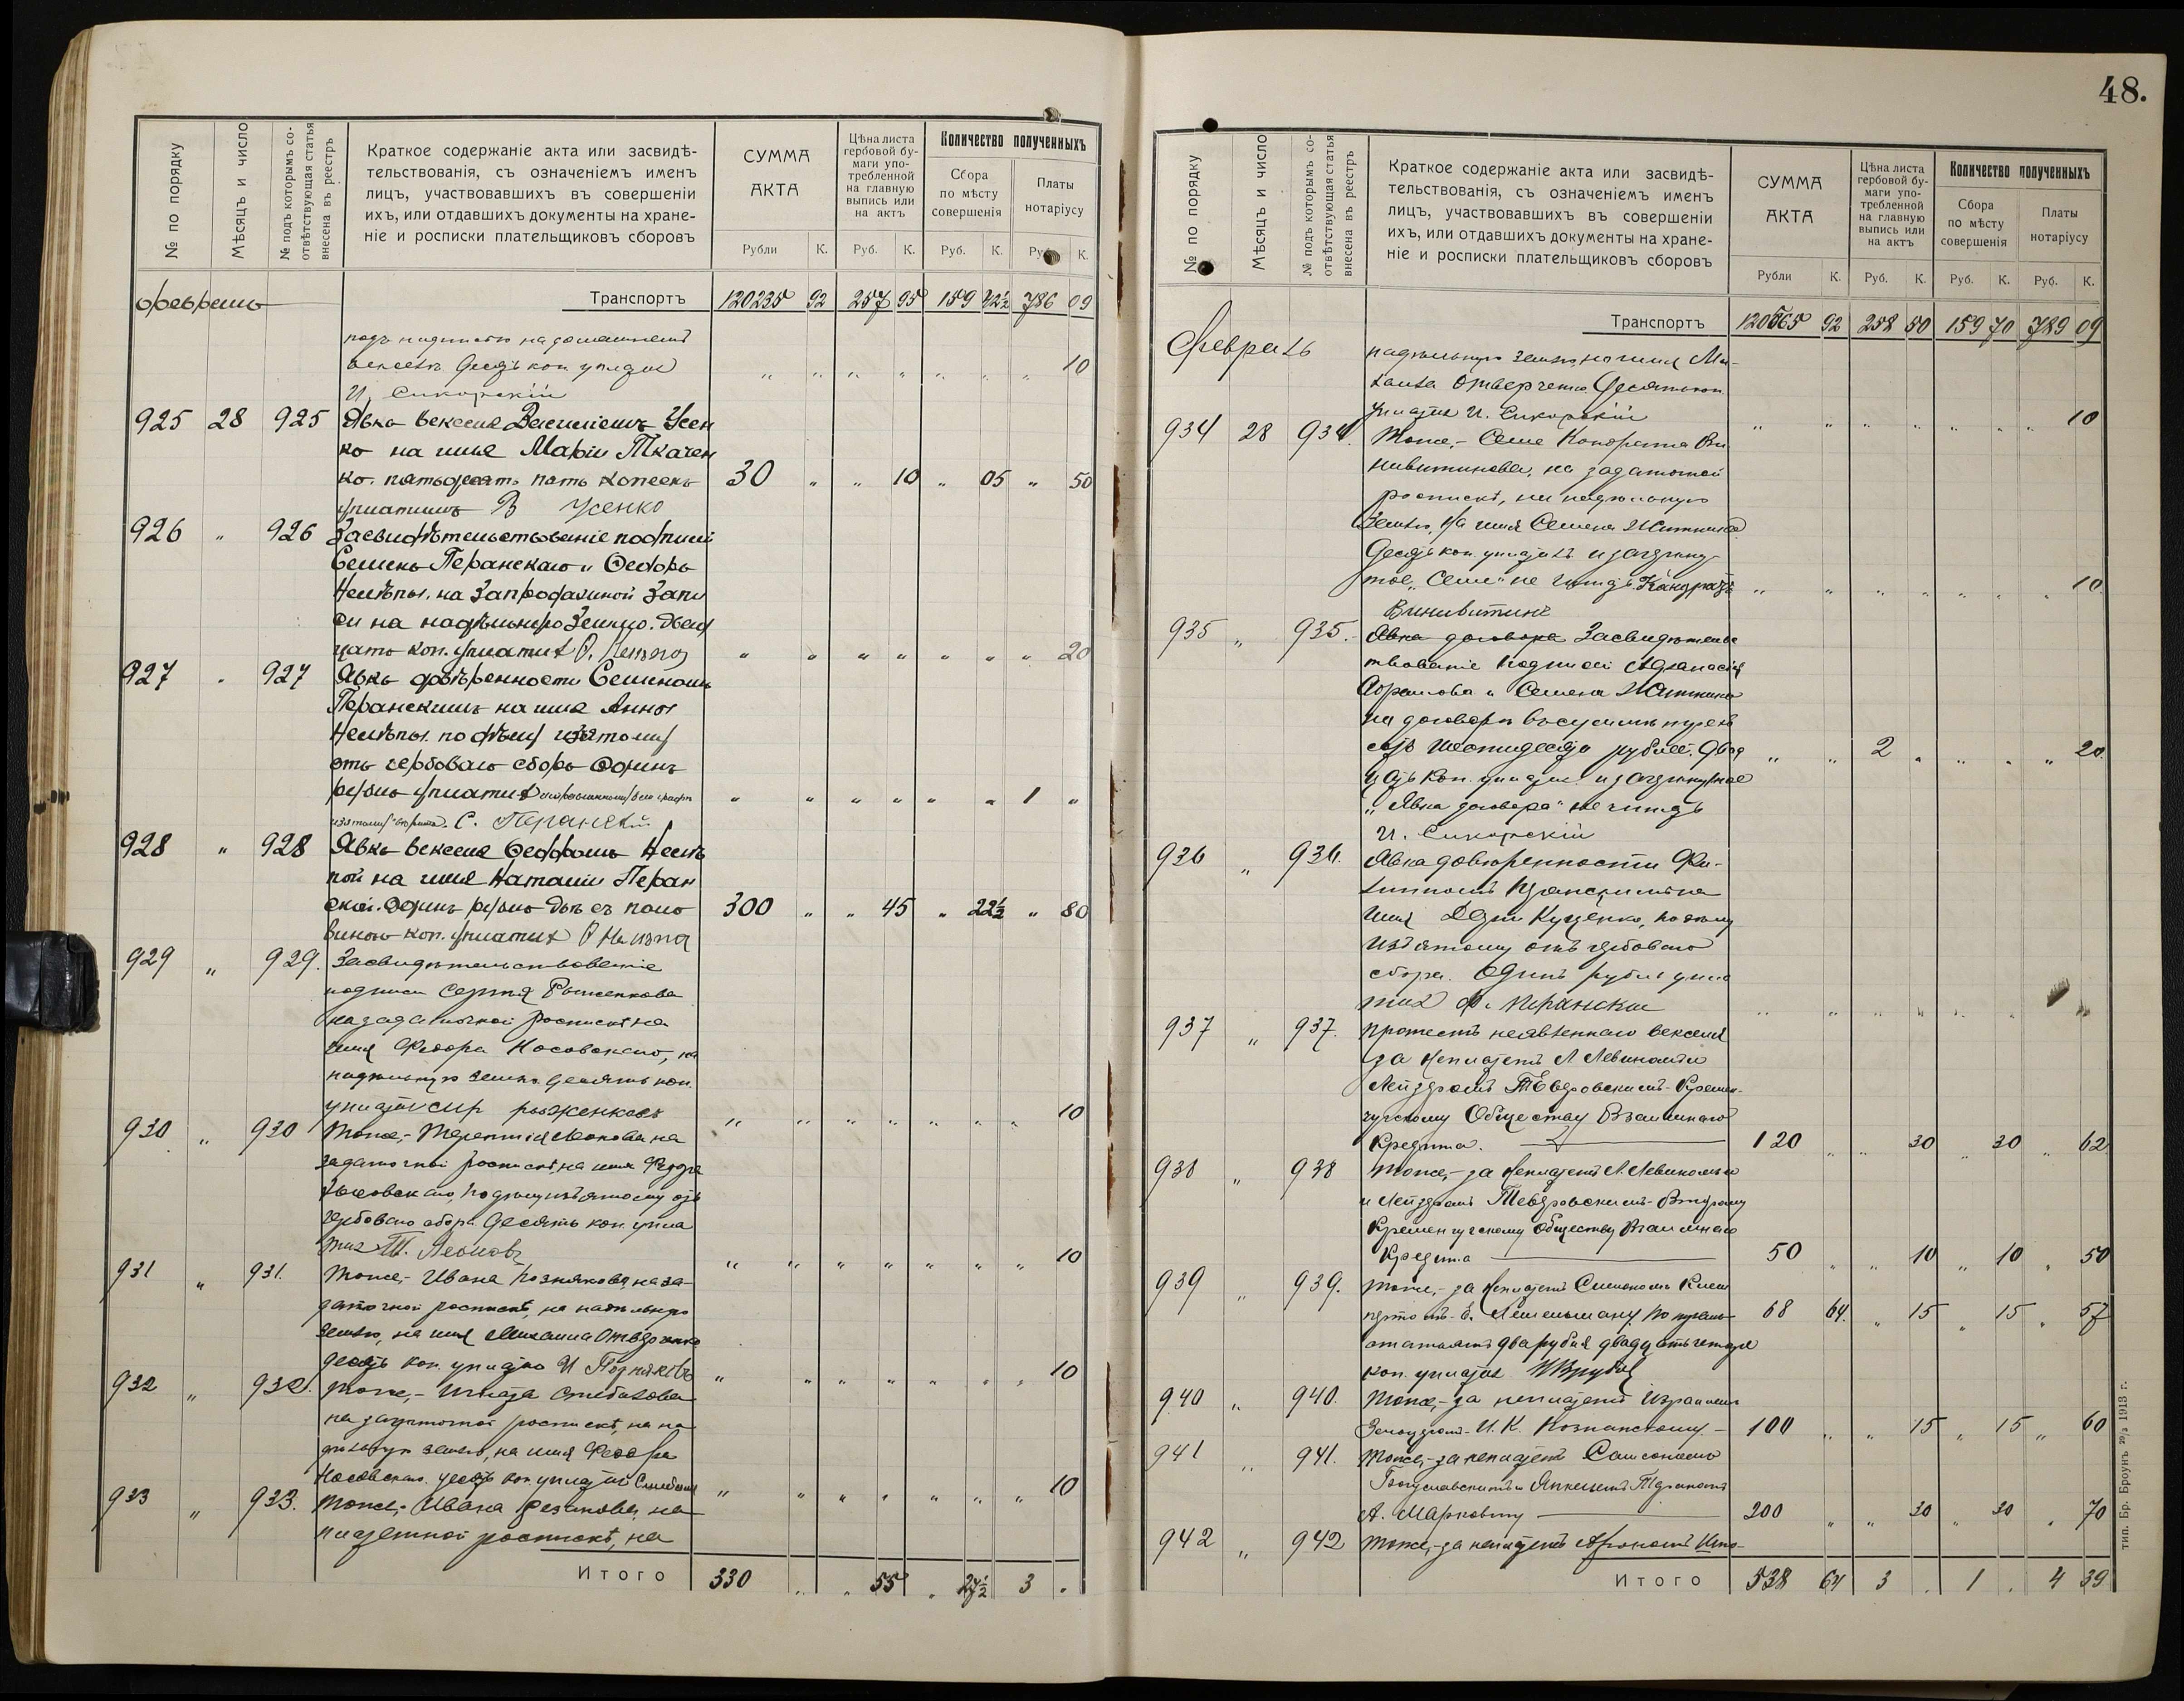 48.
№ по порядку
Мѣсяцъ и число
№ подъ которымъ со-
отвѣтствующая статья
внесена въ реестръ
Краткое содержаніе акта или засвидѣ-
тельствованія, съ означеніемъ именъ
лицъ, участвовавшихъ въ совершеніи
ихъ, или отдавшихъ документы на хране-
ніе и росписки плательщиковъ сборовъ
СУММА
АКТА
Рубли К.
Цѣна листа
гербовой бу-
маги упо-
требленной
на главную
выпись или
на актъ
Руб. К.
Количество полученныхъ
Сбора
по мѣсту
совершенія
Руб. К.
Платы
нотаріусу
Руб. К.
Февраль Транспортъ 120235 92 257 95 159 42½ 786 09
подъ подписью на домашнемъ
векселѣ. Десять коп. уплатил 10
И. Сикорскій
925 28 925 Явка векселя Василіемъ Усен
ко на имя Маріи Ткачен
ко. пятьдесятъ пять копеекъ 30 " " 10 " 05 " 50
уплатилъ В Усенко
926 " 926 Засвидѣтельствованіе подписи
Семена Перанскаго и Ѳедора
Нелѣпы. на Запродажной Запи
си на надѣльную Землю. Двад
цать коп. уплатил 20
927 " 927 Явка довѣренности Семеномъ
Перанскимъ на имя Анны
Нелѣпы. по дѣлу изъятому
отъ гербоваго сбора Одинъ
рубль уплатил 1 "
С. Перанскій
928 " 928 Явка векселя Ѳедоромъ Нелѣ
пой на имя Наталіи Перан
ской. Одинъ рубль двѣ съ поло 300 " " 45 " 22½ " 80
виною коп. уплатил
929 " 929. Засвидѣтельствованіе
подписи Сергѣя Рыженкова
на задаточной роспискѣ на
имя Федора Носовскаго, на
надѣльную землю. Десять коп.
уплатил рыженковъ 10
930 " 930 Тоже,- Терентія Леонова на
задаточной роспискѣ, на имя Федора
Носовскаго, по дѣлу изъятому отъ
гербоваго сбора. Десять коп. упла
тил Т. Леоновъ 10
931 " 931. Тоже,- Ивана Познякова, на за-
даточной роспискѣ, на надѣльную
землю, на имя Михаила Отверченко
десять коп. уплатил И Позняковъ 10
932 " 932. Тоже,- Игната
на задаточной роспискѣ, на на
дѣльную землю, на имя Федора
Носовскаго. десять коп. уплатил 10
933 " 933. Тоже,- Ивана на
платежной роспискѣ, на
Итого 330 " " 55 " 27½ 3 "
№ по порядку
Мѣсяцъ и число
№ подъ которымъ со-
отвѣтствующая статья
внесена въ реестръ
Краткое содержаніе акта или засвидѣ-
тельствованія, съ означеніемъ именъ
лицъ, участвовавшихъ въ совершеніи
ихъ, или отдавшихъ документы на хране-
ніе и росписки плательщиковъ сборовъ
СУММА
АКТА
Рубли К.
Цѣна листа
гербовой бу-
маги упо-
требленной
на главную
выпись или
на актъ
Руб. К.
Количество полученныхъ
Сбора
по мѣсту
совершенія
Руб. К.
Платы
нотаріусу
Руб. К.
Транспортъ 120565 92 258 50 159 70 789 09
Февраль надѣльную землю, на имя Ми-
хаила Отверченко Десять коп.
уплатил И. Сикорскій 10
934 28 934. Тоже,- Семе Кондрата Ви
нивитинова, на задаточной
роспискѣ, на надѣльную
землю, на имя Семена Житника
Десять коп. уплатилъ и зачеркну-
тое "Семе" не читать. Кандратъ 10
Винивитинъ
935 " 935. Явка договора Засвидѣтельс
твованіе подписей Афанасія
Абрамова и Семена Житника
на договорѣ въ суммѣ
сотъ шестидесяти рублей. Двад 2 " 20
цать коп. уплатил и зачеркнутое
"Явка договора" не читать
И. Сикорскій
936 " 936. Явка довѣренности Фи-
липпомъ на
имя Куценко, по дѣлу
изъятому отъ гербоваго
сбора. Одинъ рубль упла
тил Ф.
937 " 937. Протестъ неявленнаго векселя
за неплатежъ Л Левинымъ и
Лейзеромъ Тевзровскимъ- Кремен-
чугскому Обществу Взаимнаго
Кредита. 120 " " 30 " 30 " 62
938 " 938 Тоже,- за неплатежъ Л. Левинымъ
и Лейзеромъ Тевзровскимъ- Второму
Кременчугскому Обществу Взаимнаго
Кредита 50 " " 10 " 10 " 50
939 " 939. Тоже,- за неплатежъ Симономъ
68 64. " 15 " 15 " 57
два рубля двадцать четыре
коп. уплатил
940 " 940. Тоже,- за неплатежъ Израилемъ
И. К. Познанскому - 100 " " 15 " 15 " 60
941 " 941. Тоже,- за неплатежъ Самсономъ
Богуславскимъ и Янкелемъ
А. Марковичу 200 " " 30 " 30 " 70
942 " 942 Тоже,- за неплатежъ
Итого 538 64 3 " 1 " 4 39
тип. Бр. Броунъ 1913 г.